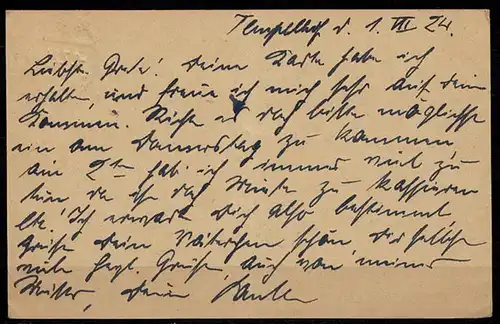 Tempelhof d. 1. VII 24.
Liebste Grete! Deine Karte habe ich
erhalten, und freue ich mich sehr auf dein
Kommen. Richte es doch bitte möglichst
ein am Donnerstag zu kommen
am 2ten hab ich immer viel zu
tun da ich doch Miete zu kassieren
Ich erwarte Dich also bestimmt,
Grüße Dein Väterchen schön, Dir selbst
viele herzl. Grüße, auch von meiner
Mutter, Dein